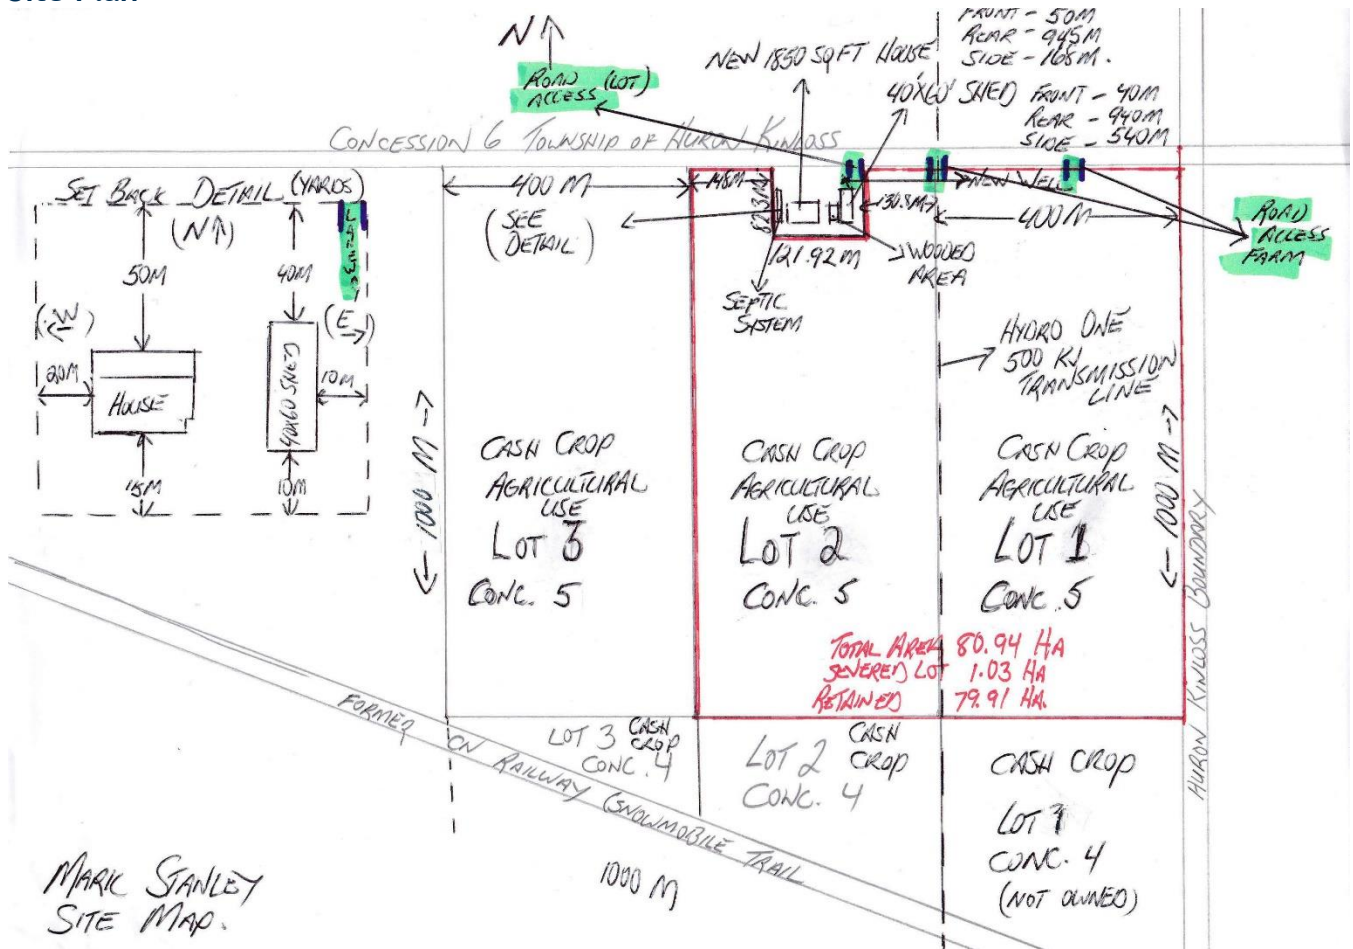 Site Plan
N
ROAD (LOT)
ACCESS
NEW 1850 SQFT HOUSE
40'X60' SHED
FRONT - 50M
REAR - 945M
SIDE - 168M.
FRONT - 40M
REAR - 940M
SIDE - 540M
CONCESSION 6 TOWNSHIP OF HURON KINLOSS
SET BACK DETAIL (YARDS)
(N↑)
50M
40M
(W)
(E)
20M
10M
HOUSE
40X60 SHED
15M
10M
400 M
(SEE
DETAIL)
148M
82.3M
121.92M
130.8M
NEW WELL
400M
WOODED
AREA
SEPTIC
SYSTEM
ROAD
ACCESS
FARM
HYDRO ONE
500 KV
TRANSMISSION
LINE
← 1000 M →
CASH CROP
AGRICULTURAL
USE
LOT 3
CONC. 5
CASH CROP
AGRICULTURAL
USE
LOT 2
CONC. 5
CASH CROP
AGRICULTURAL
USE
LOT 1
CONC. 5
← 1000 M →
HURON KINLOSS BOUNDARY
TOTAL AREA 80.94 HA
SEVERED LOT 1.03 HA
RETAINED 79.91 HA.
FORMER CN RAILWAY (SNOWMOBILE TRAIL
LOT 3 CASH
CROP
CONC. 4
LOT 2 CASH
CROP
CONC. 4
CASH CROP
LOT 1
CONC. 4
(NOT OWNED)
1000 M
MARK STANLEY
SITE MAP.